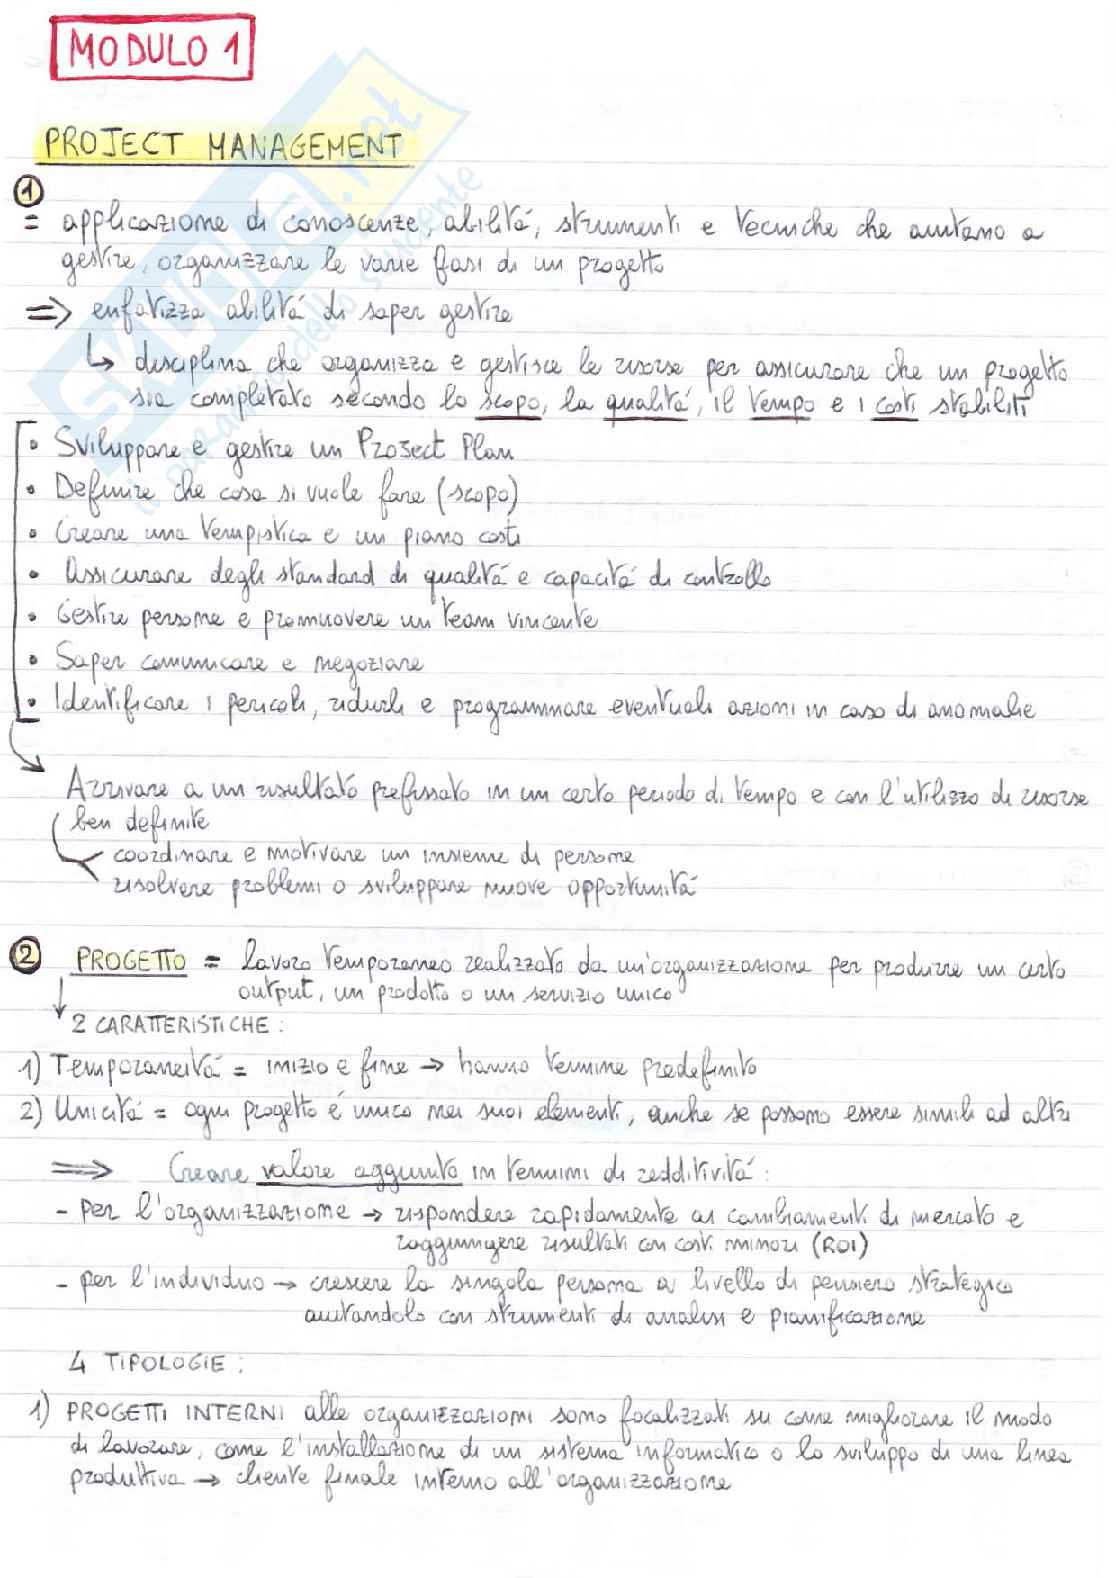 MODULO 1
PROJECT MANAGEMENT
1
= applicazione di conoscenze, abilitá, strumenti e tecniche che aiutano a
gestire, organizzare le varie fasi di un progetto
=> enfatizza abilitá di saper gestire
↳ disciplina che organizza e gestisce le risorse per assicurare che un progetto
sia completato secondo lo scopo, la qualitá, il tempo e i costi stabiliti
• Sviluppare e gestire un Project Plan
• Definire che cosa si vuole fare (scopo)
• Creare una tempistica e un piano costi
• Assicurare degli standard di qualitá e capacitá di controllo
• Gestire persone e promuovere un team vincente
• Saper comunicare e negoziare
• Identificare i pericoli, ridurli e programmare eventuali azioni in caso di anomalie
Arrivare a un risultato prefissato in un certo periodo di tempo e con l'utilizzo di risorse
ben definite
coordinare e motivare un insieme di persone
risolvere problemi o sviluppare nuove opportunitá
2 PROGETTO = lavoro temporaneo realizzato da un'organizzazione per produrre un certo
output, un prodotto o un servizio unico
2 CARATTERISTICHE:
1) Temporaneitá = inizio e fine → hanno termine predefinito
2) Unicitá = ogni progetto é unico nei suoi elementi, anche se possono essere simili ad altri
=> Creare valore aggiunto in termini di redditivitá:
- per l'organizzazione → rispondere rapidamente ai cambiamenti di mercato e
raggiungere risultati con costi minori (ROI)
- per l'individuo → crescere la singola persona a livello di pensiero strategico
aiutandolo con strumenti di analisi e pianificazione
4 TIPOLOGIE:
1) PROGETTI INTERNI alle organizzazioni sono focalizzati su come migliorare il modo
di lavorare, come l'installazione di un sistema informatico o lo sviluppo di una linea
produttiva → cliente finale interno all'organizzazione